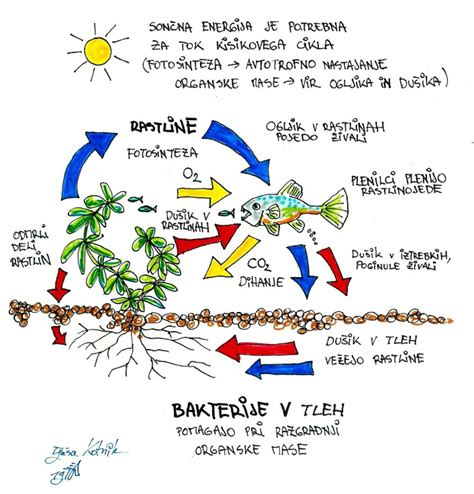 SONČNA ENERGIJA JE POTREBNA
ZA TOK KISIKOVEGA CIKLA
(FOTOSINTEZA → AVTOTROFNO NASTAJANJE
ORGANSKE MASE → VIR OGLJIKA IN DUŠIKA)
RASTLINE
FOTOSINTEZA
OGLJIK V RASTLINAH
POJEDO ŽIVALI
O2
PLENILCI PLENIJO
RASTLINOJEDE
DUŠIK V
RASTLINAH
ODMRLI
DELI
RASTLIN
CO2
DIHANJE
DUŠIK V IZTREBKIH,
POGINULE ŽIVALI
DUŠIK V TLEH
VEŽEJO RASTLINE
BAKTERIJE V TLEH
POMAGAJO PRI RAZGRADNJI
ORGANSKE MASE